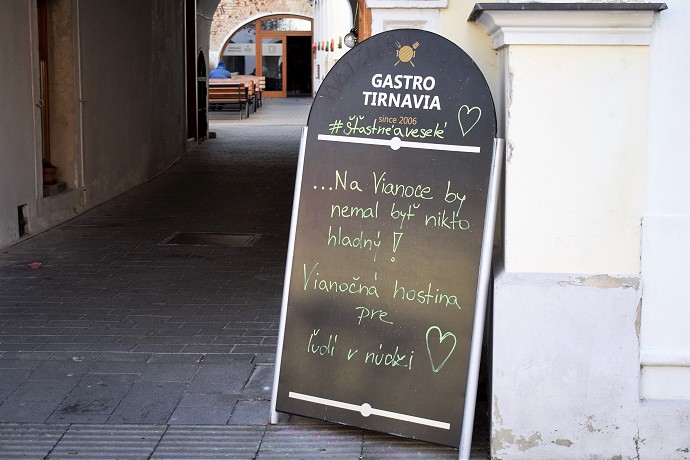 GASTRO
TIRNAVIA
since 2006
#Šťastnéaveselé
...Na Vianoce by
nemal byť nikto
hladný!
Vianočná hostina
pre
ľudí v núdzi